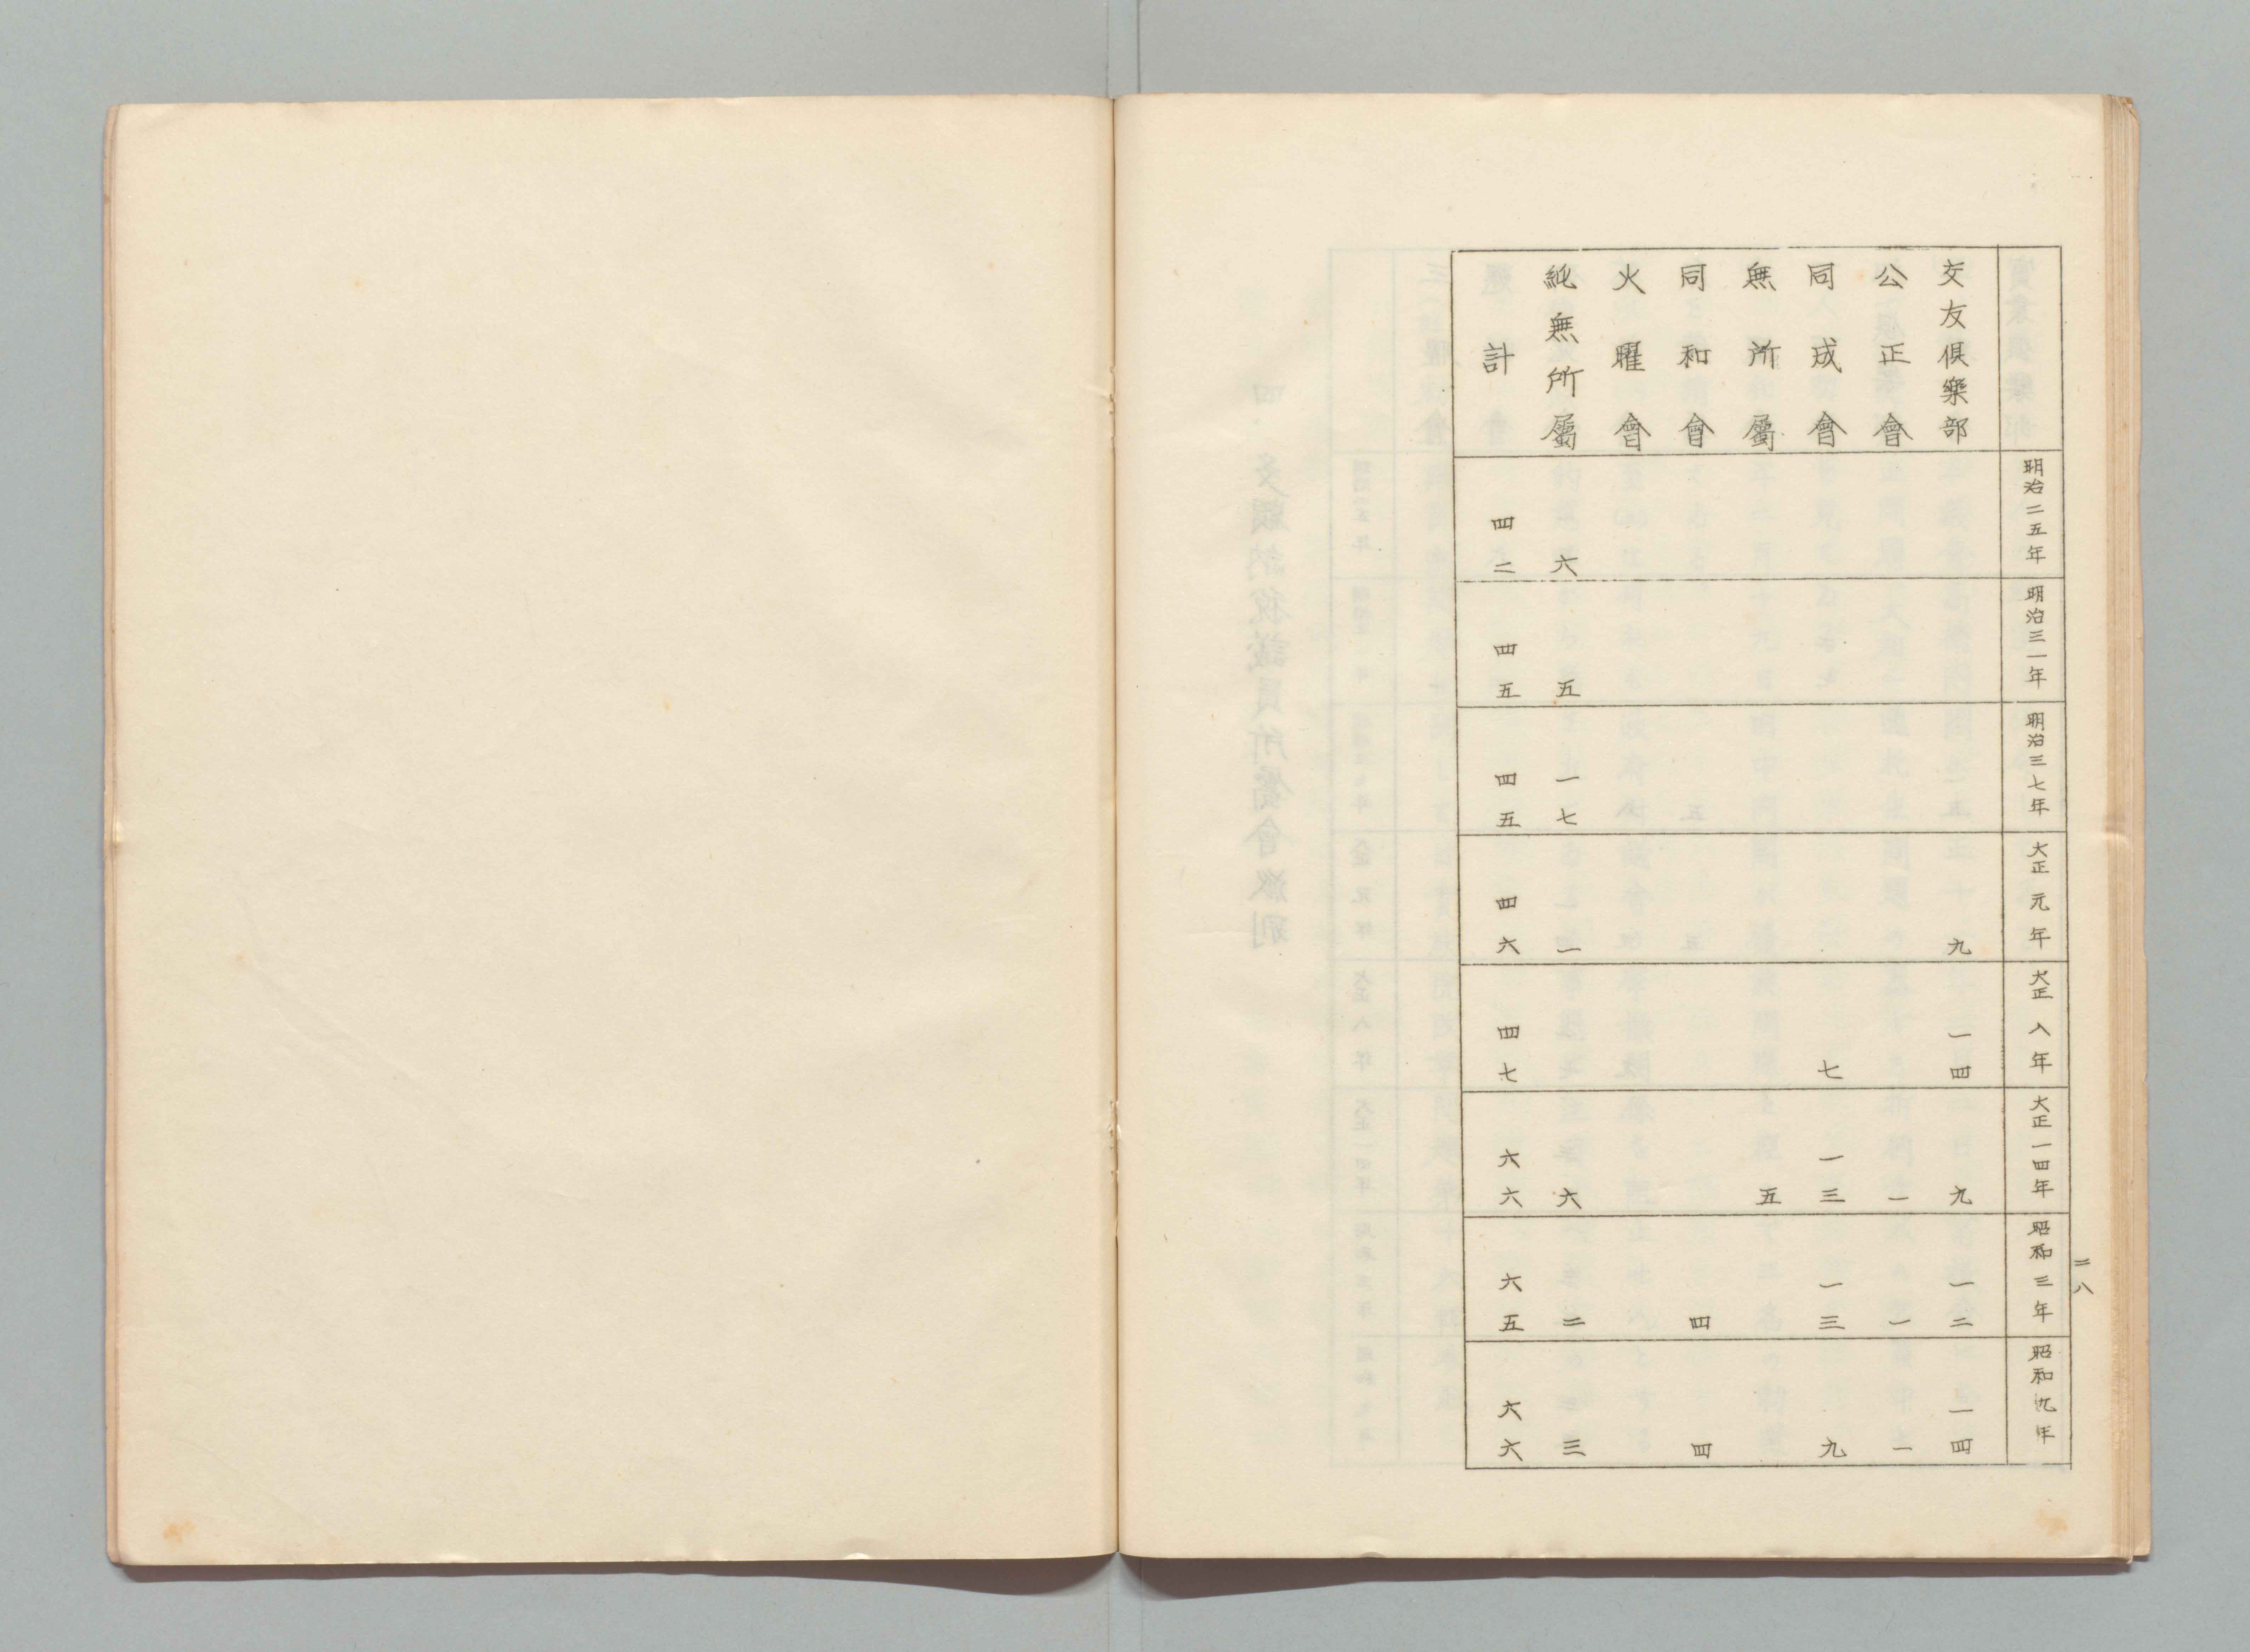 二八
明治二五年 明治三一年 明治三七年 大正元年 大正八年 大正一四年 昭和三年 昭和九年
交友俱樂部 九 一四 九 一二 一四
公正會 一 一 一
同成會 七 一三 一三 九
無所屬 五
同和會 四 四
火曜會
純無所屬 六 五 一七 一 六 二 三
計 四二 四五 四五 四六 四七 六六 六五 六六